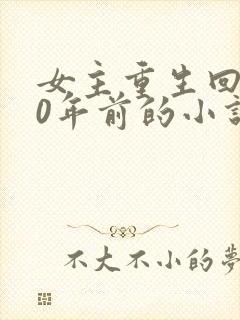 女主重生回
0年前的小
不大不小的夢